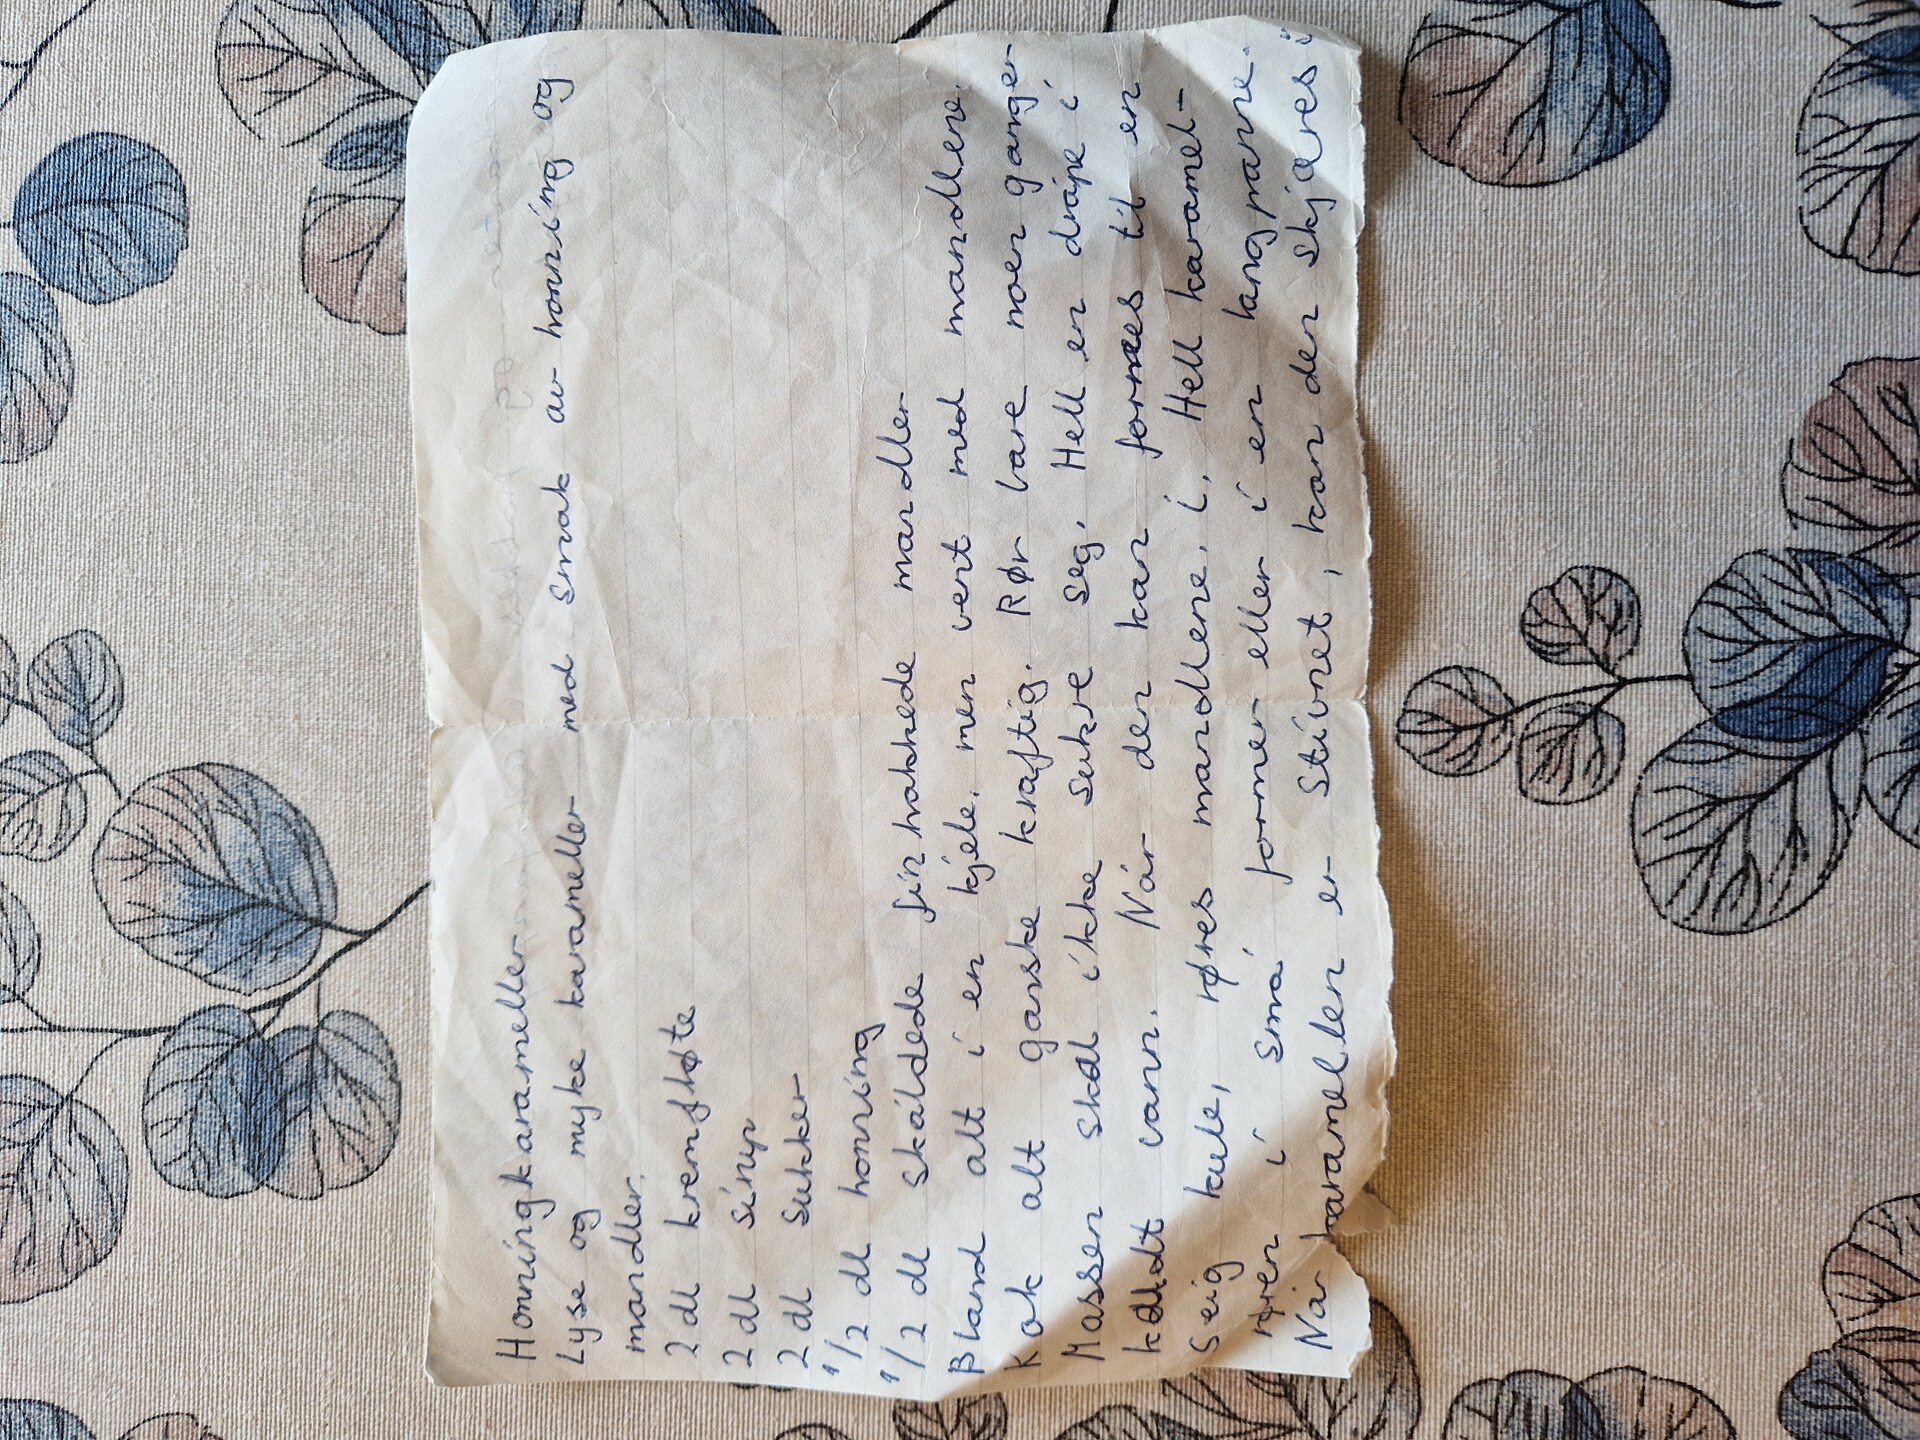 Honningkarameller
Lyse og myke karameller med smak av honning og
mandler.
2 dl kremfløte
2 dl sirup
2 dl sukker
1/2 dl honning
1/2 dl skåldede finhakkede mandler
Bland alt i en kjele, men vent med mandlene.
Kok alt ganske kraftig. Rør bare noen ganger
Massen skal ikke sukre seg. Hell en dråpe i
kaldt vann. Når den kan formes til en
seig kule, røres mandlene. i. Hell karamel-
røren i små former eller i en langpanne.
Når karamellen er stivnet, kan den skjæres i